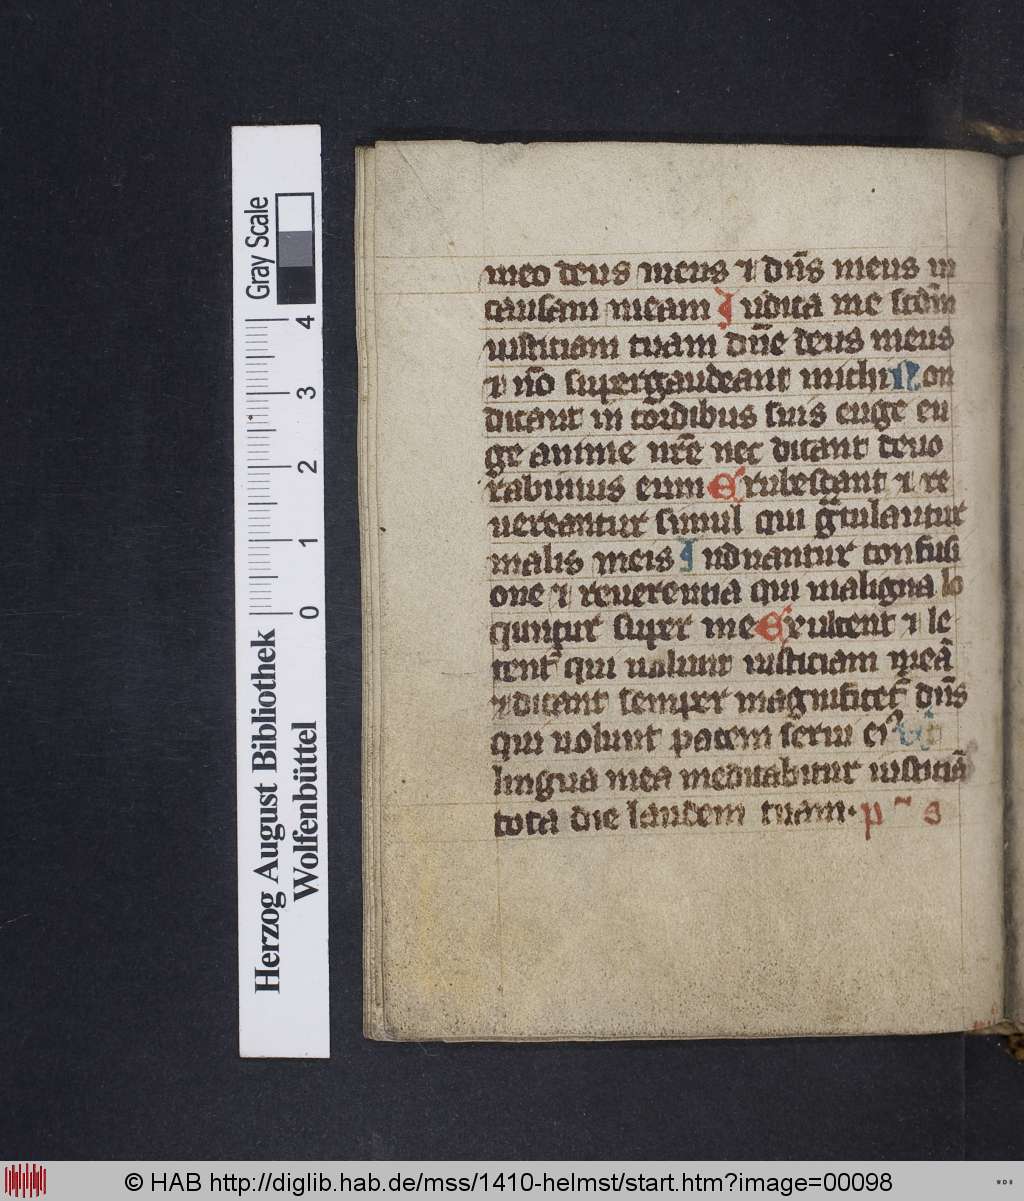 meo deus meus ⁊ dn̄s meus in
causam meam Iudica me scdm̄
iusticiam tuam dn̄e deus meus
⁊ nō supergaudeant michi Non
dicant in cordibus suis euge eu
ge anime nr̄e nec dicant deuo
rabimus eum Erubescant ⁊ re
uereantur simul qui gͣtulantur
malis meis Induantur confusi
one ⁊ reuerentia qui maligna lo
quntur super me Exultent ⁊ le
tent᷑ qui uolunt iusticiam meā
⁊ dicant semper magnificet᷑ dn̄s
qui uolunt pacem serui eiꝰ Et
lingua mea meditabitur iusticiā
tota die laudem tuam. p̄ s
Gray Scale
0 1 2 3 4
Herzog August Bibliothek
Wolfenbüttel
© HAB http://diglib.hab.de/mss/1410-helmst/start.htm?image=00098